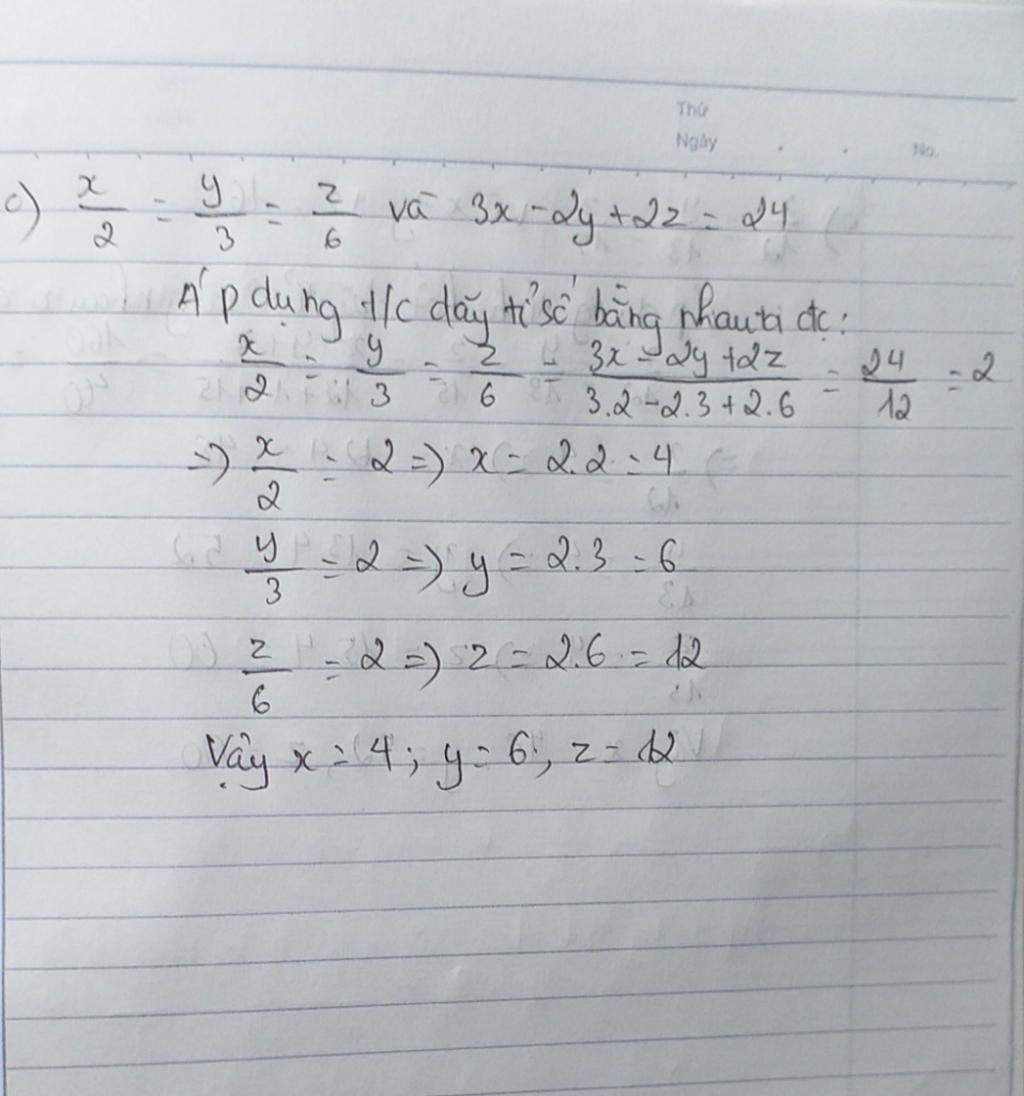 Thứ
Ngày . . No.
c) x/2 = y/3 = z/6 và 3x - 2y + 2z = 24
Áp dụng t/c dãy tỉ số bằng nhau ta đc:
x/2 = y/3 = z/6 = (3x - 2y + 2z)/(3.2 - 2.3 + 2.6) = 24/12 = 2
=> x/2 = 2 => x = 2.2 = 4
y/3 = 2 => y = 2.3 = 6
z/6 = 2 => z = 2.6 = 12
Vậy x = 4; y = 6; z = 12